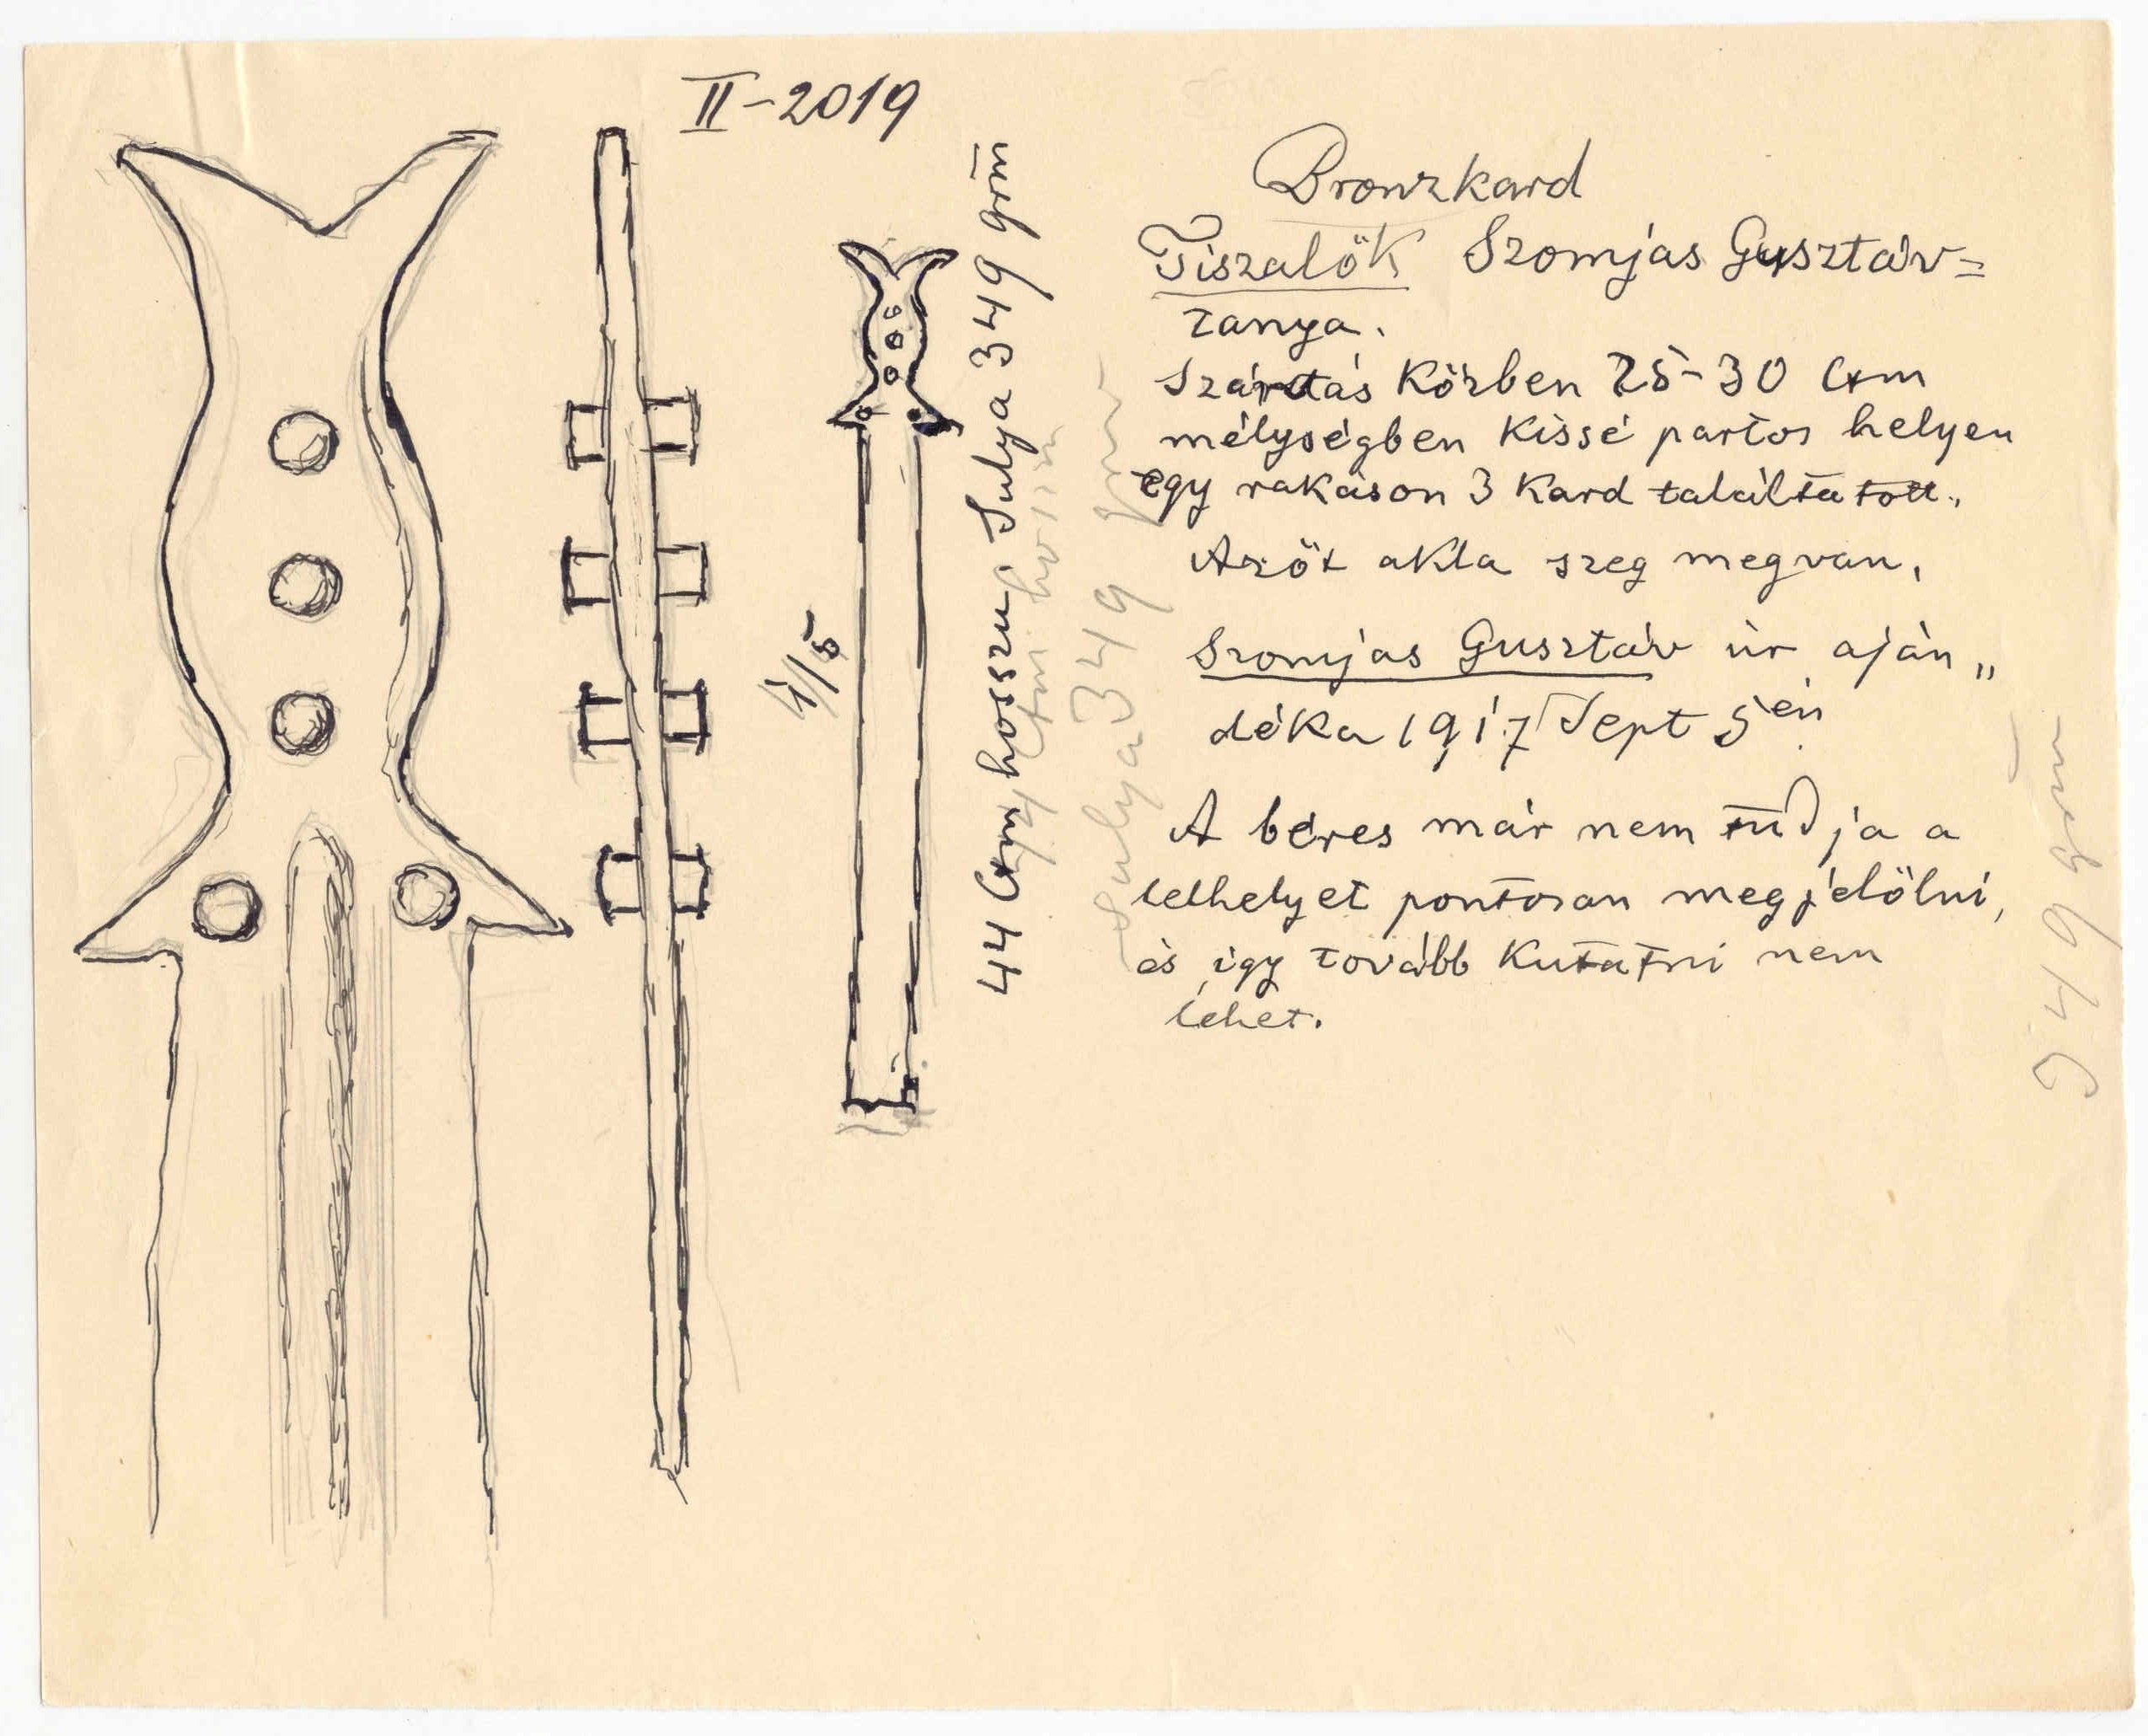 II-2019
Bronzkard
Tiszalök Szomjas Gusztáv=
tanya.
Szántás közben 25-30 Ctm
mélységben kissé partos helyen
egy rakáson 3 kard találtatott.
Az öt akla szeg megvan,
Szomjas Gusztáv úr aján„
déka 1917 Sept 5én
A béres már nem tudja a
lelhelyet pontosan megjelölni,
és így tovább kutatni nem
lehet.
4/5
44 Ctm hosszu, Sulya 349 grm
44 Ctm hosszu
Sulya 349 grm